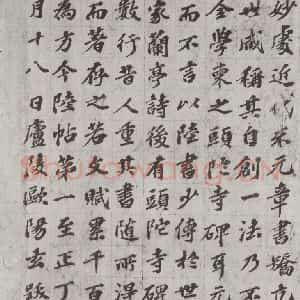 妙處近代米元章書驕立
世咸稱其自創一法乃不
全學東之頭陀寺碑耳元
而不言以陸書少傳於世
家蘭亭詩後有頭陀寺碑
數行昔人重其書隨所得
而著存之若文賦累千百
為方今陸帖第一至正丁
月十八日廬陵歐陽玄跋